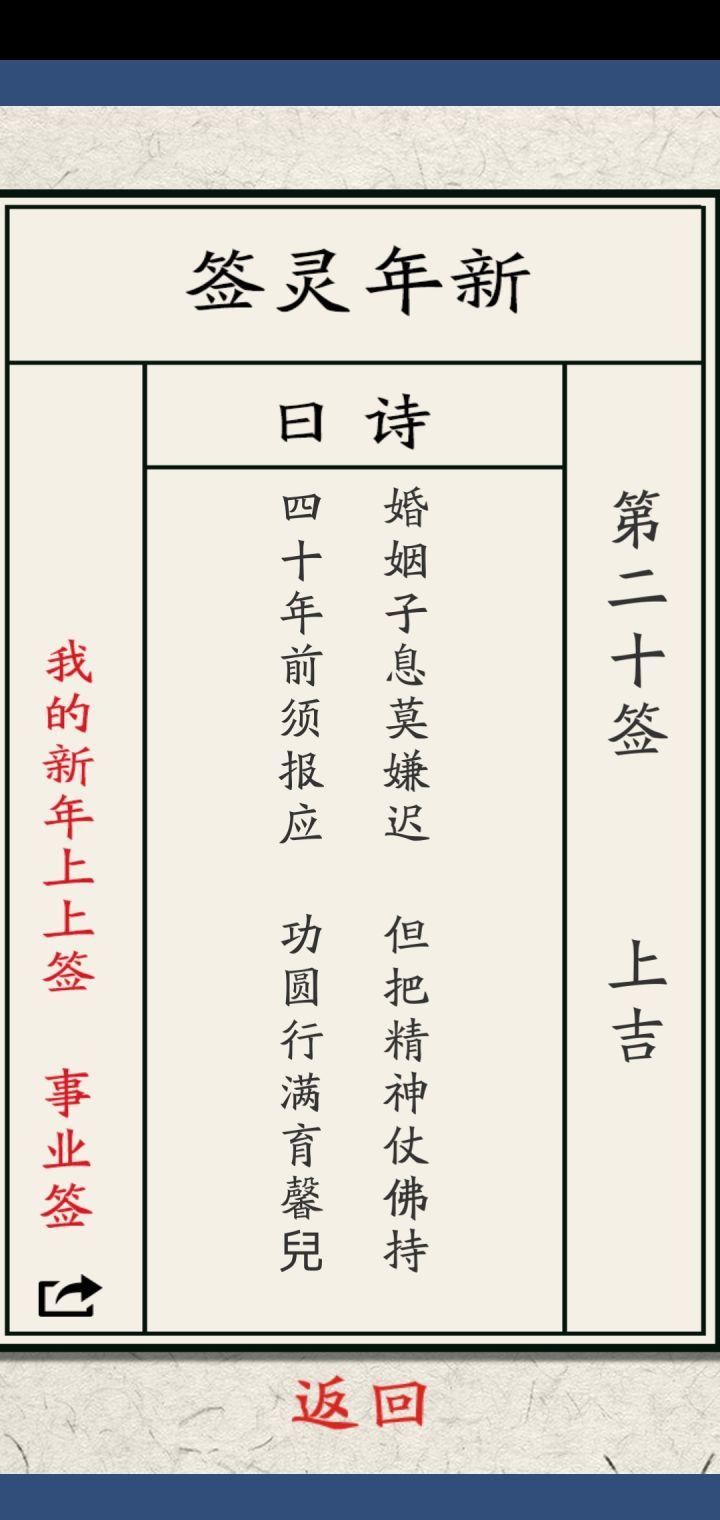 新年灵签
第二十签 上吉
诗曰
婚姻子息莫嫌迟 但把精神仗佛持
四十年前须报应 功圆行满育馨兒
我的新年上上签 事业签
返回